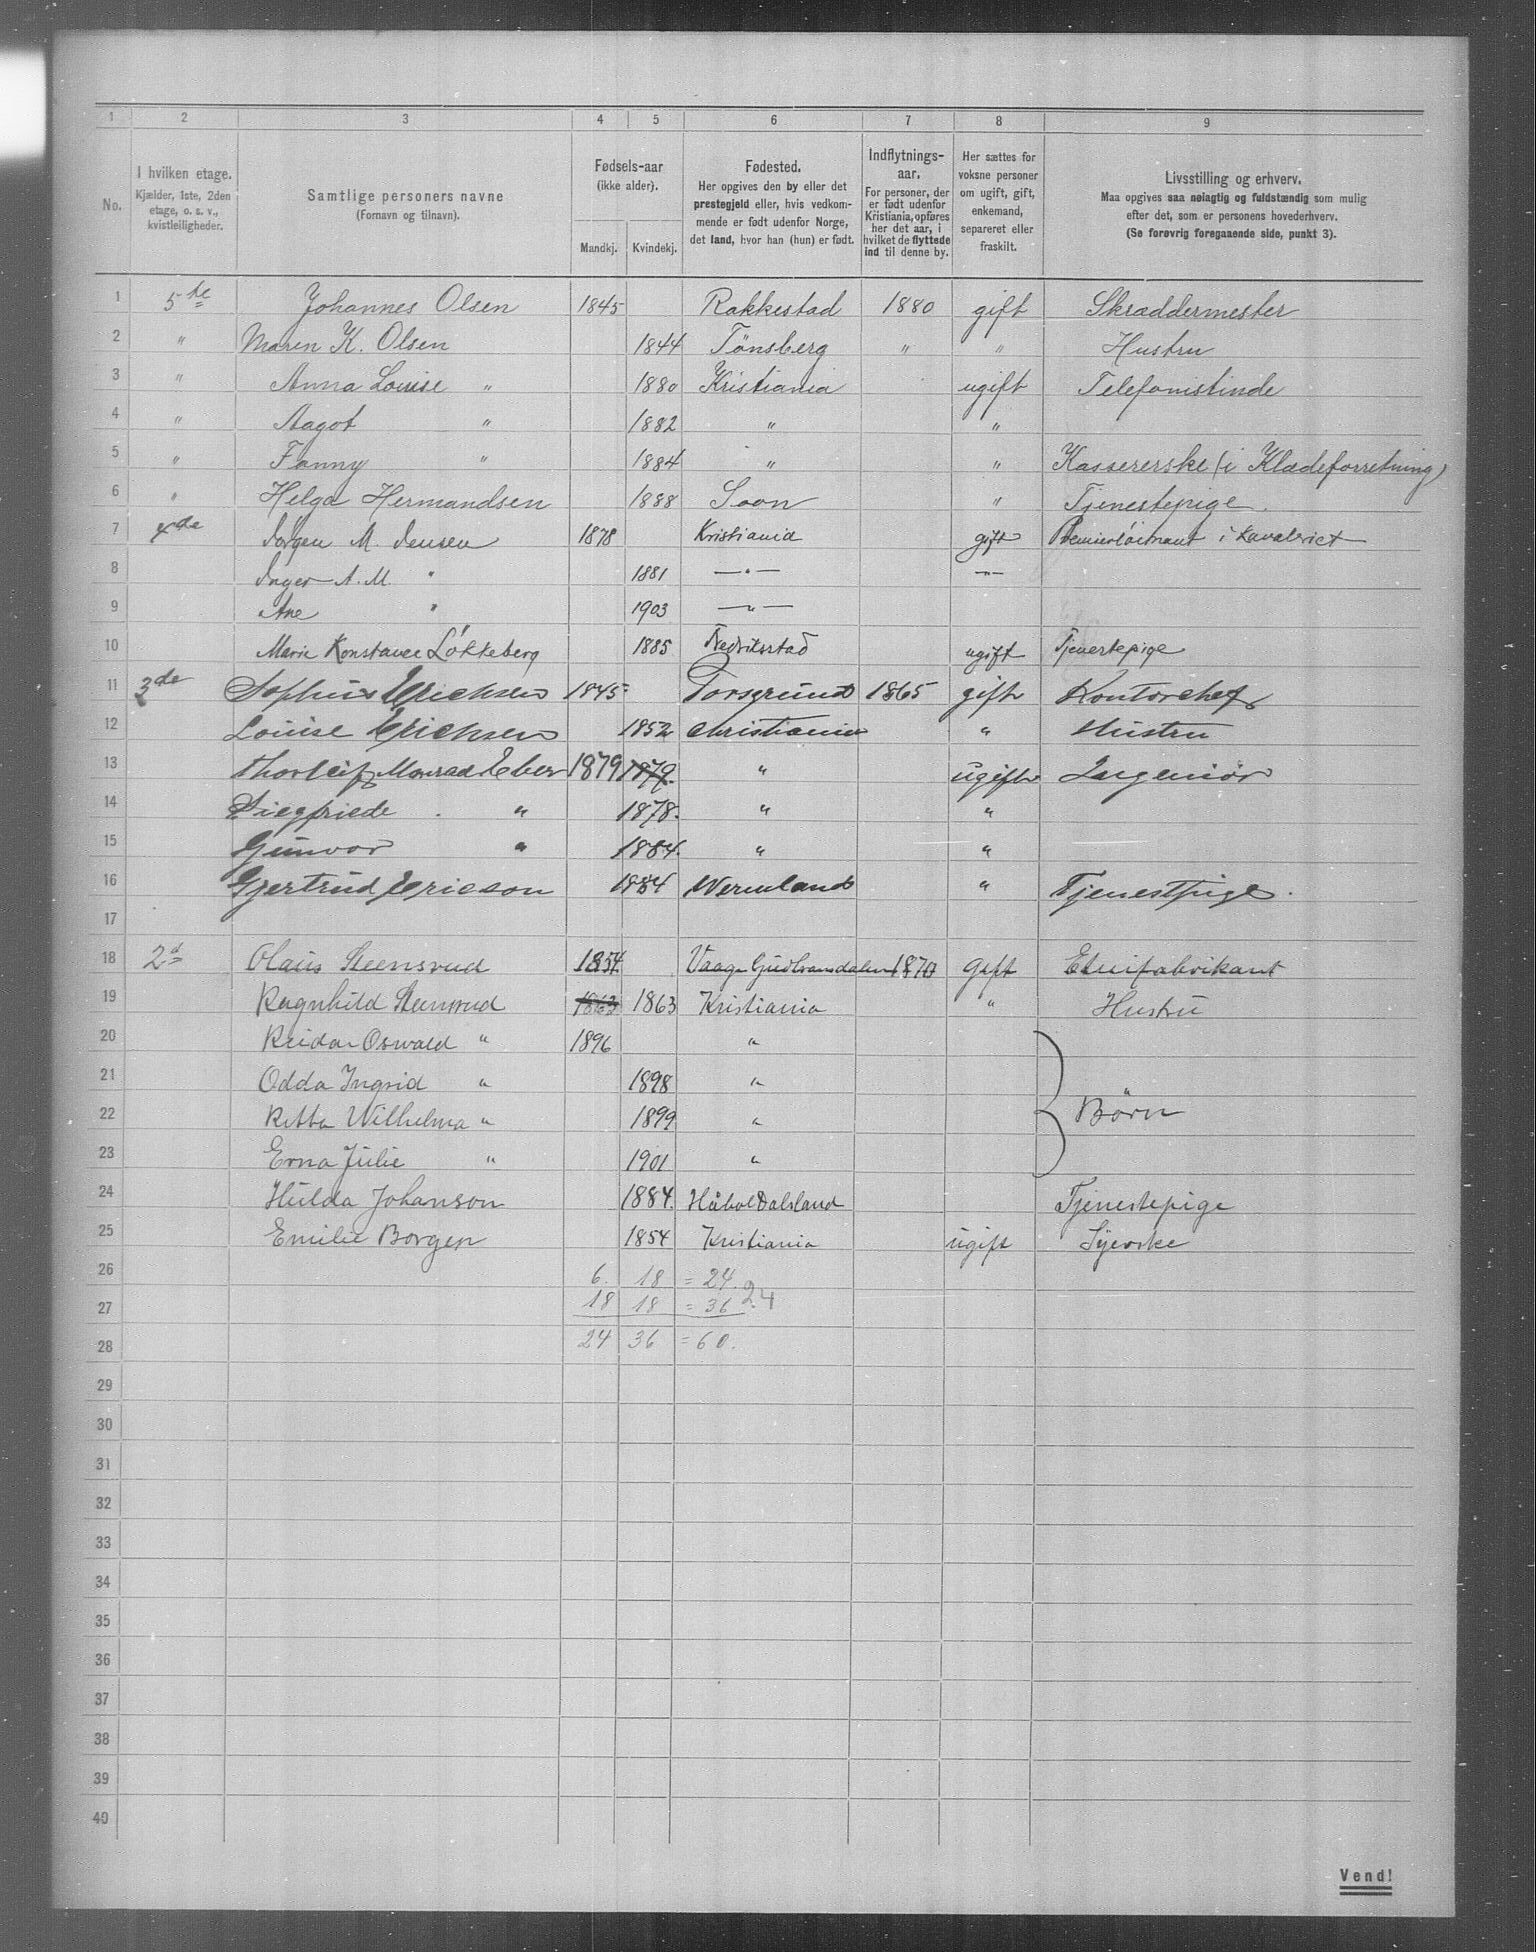 1 2 3 4 5 6 7 8 9
No.
I hvilken etage.
Kjælder, 1ste, 2den
etage, o. s. v.,
kvistleiligheder.
Samtlige personers navne
(Fornavn og tilnavn).
Fødsels-aar
(ikke alder).
Mandkj. Kvindekj.
Fødested.
Her opgives den by eller det
prestegjeld eller, hvis vedkom-
mende er født udenfor Norge,
det land, hvor han (hun) er født.
Indflytnings-
aar.
For personer, der
er født udenfor
Kristiania, opføres
her det aar, i
hvilket de flyttede
ind til denne by.
Her sættes for
voksne personer
om ugift, gift,
enkemand,
separeret eller
fraskilt.
Livsstilling og erhverv.
Maa opgives saa nøiagtig og fuldstændig som mulig
efter det, som er personens hovederhverv.
(Se forøvrig foregaaende side, punkt 3).
1 5te Johannes Olsen 1845 Rakkestad 1880 gift Skræddermester
2 " Maren K. Olsen 1844 Tönsberg " " Hustru
3 " Anna Louise " 1880 Kristiania ugift Telefonistinde
4 " Aagot " 1882 " "
5 " Fanny " 1884 " " Kassererske (i Klædeforretning)
6 " Helga Hermandsen 1888 Soon " Tjenestepige.
7 4de Jørgen M. Jensen 1878 Kristiania gift Premierløitnant i Kavaleriet
8 Inger A. M. " 1881 —"— —"—
9 Ane " 1903 —"—
10 Marie Konstance Løkkeberg 1885 Fredriksstad ugift Tjenestepige
11 3de Sophus Erichsen 1845 Porsgrund 1865 gift Kontorchef
12 Louise Erichsen 1852 Christiania " Hustru
13 Thorleif Monrad Eber 1879 1879. " ugift Ingeniör
14 Siegfriede " 1878. " "
15 Gunvor " 1884. " "
16 Gjertrud Ericson 1884 Wermland " Tjenestpige.
17
18 2d Olaus Steensrud 1854. Vaage Gudbransdalen 1870 Gift Etuifabrikant
19 Ragnhild Steensrud 1863 1863 Kristiania " Hustru
20 Reidar Oswald " 1896 "
21 Odda Ingrid " 1898 "
22 Ketta Wilhelma " 1899 " Börn
23 Erna Julie " 1901 "
24 Hulda Johanson 1884. Håbol Dalsland Tjenestepige
25 Emilie Borgen 1854 Kristiania ugift Syerske
26 6. 18 = 24.
27 18 18 = 36 24
28 24 36 = 60.
29
30
31
32
33
34
35
36
37
38
39
40
Vend!